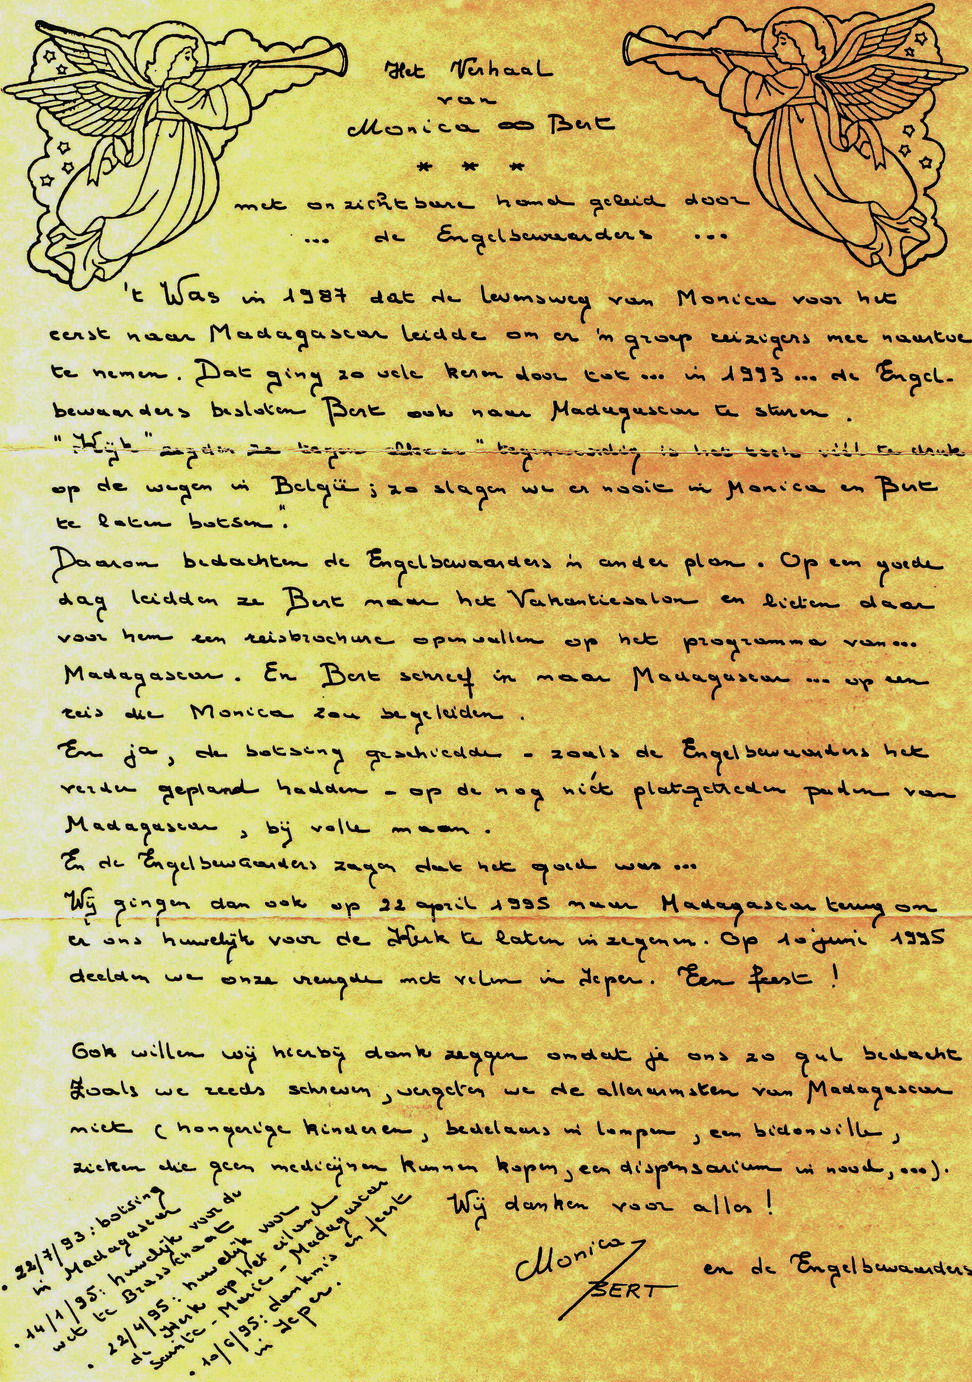 Het Verhaal
van
Monica ∞ Bert
* * *
met onzichtbare hand geleid door
... de Engelbewaarders ...
't Was in 1987 dat de levensweg van Monica voor het
eerst naar Madagascar leidde om er 'n groep reizigers mee naartoe
te nemen. Dat ging zo vele keren door tot ... in 1993 ... de Engel-
bewaarders besloten Bert ook naar Madagascar te sturen.
"Kijk" zegden ze tegen elkaar "tegenwoordig is het toch véél te druk
op de wegen in België; zo slagen we er nooit in Monica en Bert
te laten botsen".
Daarom bedachten de Engelbewaarders 'n ander plan. Op een goede
dag leidden ze Bert naar het Vakantiesalon en lieten daar
voor hem een reisbrochure openvallen op het programma van...
Madagascar. En Bert schreef in naar Madagascar ... op een
reis die Monica zou begeleiden.
En ja, de botsing geschiedde - zoals de Engelbewaarders het
verder gepland hadden - op de nog niét platgetreden paden van
Madagascar, bij volle maan.
En de Engelbewaarders zagen dat het goed was ...
Wij gingen dan ook op 22 april 1995 naar Madagascar terug om
er ons huwelijk voor de Kerk te laten inzegenen. Op 10 juni 1995
deelden we onze vreugde met velen in Ieper. Een feest!
Ook willen wij hierbij dank zeggen omdat je ons zo gul bedacht
Zoals we reeds schreven, vergeten we de allerarmsten van Madagascar
niet (hongerige kinderen, bedelaars in lompen, een bidonville,
zieken die geen medicijnen kunnen kopen, een dispensarium in nood, ...).
Wij danken voor alles!
Monica
BERT
en de Engelbewaarders
. 22/7/93: botsing
in Madagascar
. 14/1/95: huwelijk voor de
wet te Brasschaat
. 22/4/95: huwelijk voor
de Kerk op het eiland
Sainte-Marie - Madagascar
. 10/6/95: dankmis en feest
in Ieper.